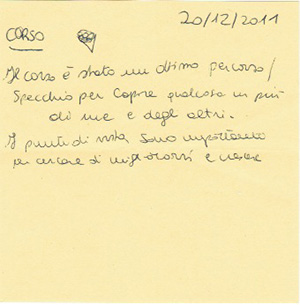 20/12/2011
CORSO
Il corso è stato un ottimo percorso/
Specchio per capire qualcosa in più
di me e degli altri.
I punti di vista sono importanti
per cercare di migliorarsi e